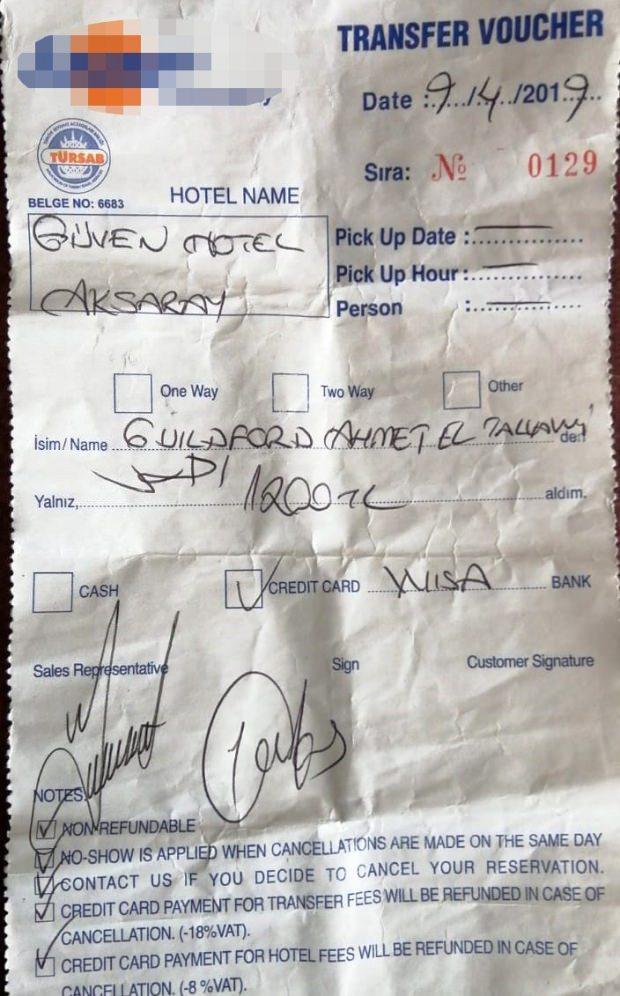 TRANSFER VOUCHER
Date :9./.4./2019..
Sıra: № 0129
TÜRSAB
BELGE NO: 6683
HOTEL NAME
GÜVEN HOTEL
AKSARAY
Pick Up Date :
Pick Up Hour :
Person :
One Way
Two Way
Other
İsim/Name GUILDFORD AHMET EL den
Yalnız, 1200 TL aldım.
CASH
CREDIT CARD WISA BANK
Sales Representative
Sign
Customer Signature
NOTES:
NON-REFUNDABLE
NO-SHOW IS APPLIED WHEN CANCELLATIONS ARE MADE ON THE SAME DAY
CONTACT US IF YOU DECIDE TO CANCEL YOUR RESERVATION.
CREDIT CARD PAYMENT FOR TRANSFER FEES WILL BE REFUNDED IN CASE OF
CANCELLATION. (-18%VAT).
CREDIT CARD PAYMENT FOR HOTEL FEES WILL BE REFUNDED IN CASE OF
CANCELLATION. (-8 %VAT).